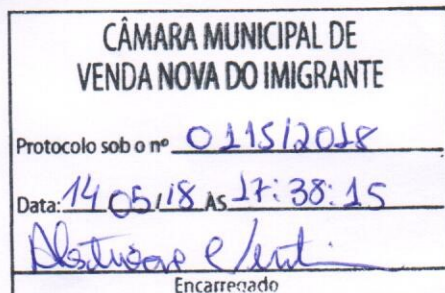 CÂMARA MUNICIPAL DE
VENDA NOVA DO IMIGRANTE
Protocolo sob o nº 0115/2018
Data: 14/05/18 às 17:38:15
Encarregado